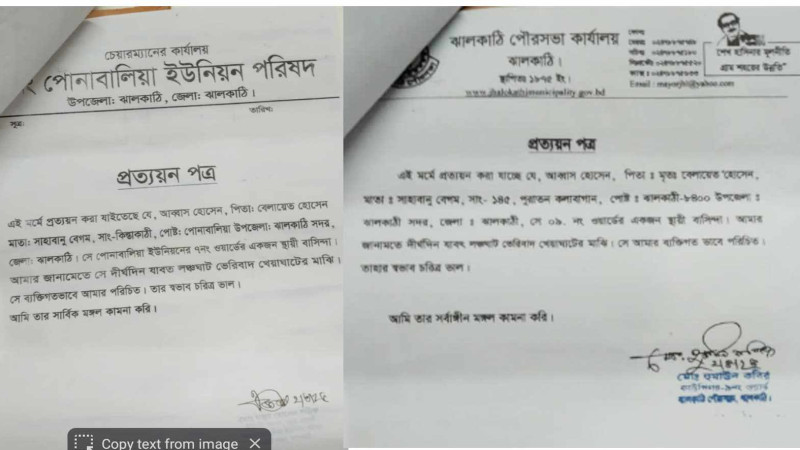 চেয়ারম্যানের কার্যালয়
নং পোনাবালিয়া ইউনিয়ন পরিষদ
উপজেলা: ঝালকাঠি, জেলা: ঝালকাঠি।
সূত্র:
তারিখ:
প্রত্যয়ন পত্র
এই মর্মে প্রত্যয়ন করা যাইতেছে যে, আব্বাস হোসেন, পিতা: বেলায়েত হোসেন
মাতা: সাহাবানু বেগম, সাং-কিস্তাকাঠী, পোষ্ট: পোনাবালিয়া উপজেলা: ঝালকাঠি সদর,
জেলা: ঝালকাঠি। সে পোনাবালিয়া ইউনিয়নের ৭নং ওয়ার্ডের একজন স্থায়ী বাসিন্দা।
আমার জানামতে সে দীর্ঘদিন যাবত লঞ্চঘাট ভেরিবাদ খেয়াঘাটের মাঝি।
সে ব্যক্তিগতভাবে আমার পরিচিত। তার স্বভাব চরিত্র ভাল।
আমি তার সার্বিক মঙ্গল কামনা করি।
Copy text from image
ঝালকাঠি পৌরসভা কার্যালয়
ঝালকাঠি।
স্থাপিত ১৮৭৫ ইং।
www.jhalokathimunicipality.gov.bd
Email : mayorjhl@yahoo.com
শেখ হাসিনার মূলনীতি
গ্রাম শহরের উন্নতি"
প্রত্যয়ন পত্র
এই মর্মে প্রত্যয়ন করা যাচ্ছে যে, আব্বাস হোসেন, পিতা ঃ মৃতঃ বেলায়েত হোসেন,
মাতা ঃ সাহাবানু বেগম, সাং- ১৪৫, পুরাতন কলাবাগান, পোষ্ট ঃ ঝালকাঠী-৮৪০০ উপজেলা ঃ
ঝালকাঠী সদর, জেলা ঃ ঝালকাঠী, সে ০৯. নং ওয়ার্ডের একজন স্থায়ী বাসিন্দা। আমার
জানামতে দীর্ঘদিন যাবৎ লঞ্চঘাট ভেরিবাদ খেয়াঘাটের মাঝি। সে আমার ব্যক্তিগত ভাবে পরিচিত।
তাহার স্বভাব চরিত্র ভাল।
আমি তার সর্বাঙ্গীন মঙ্গল কামনা করি।